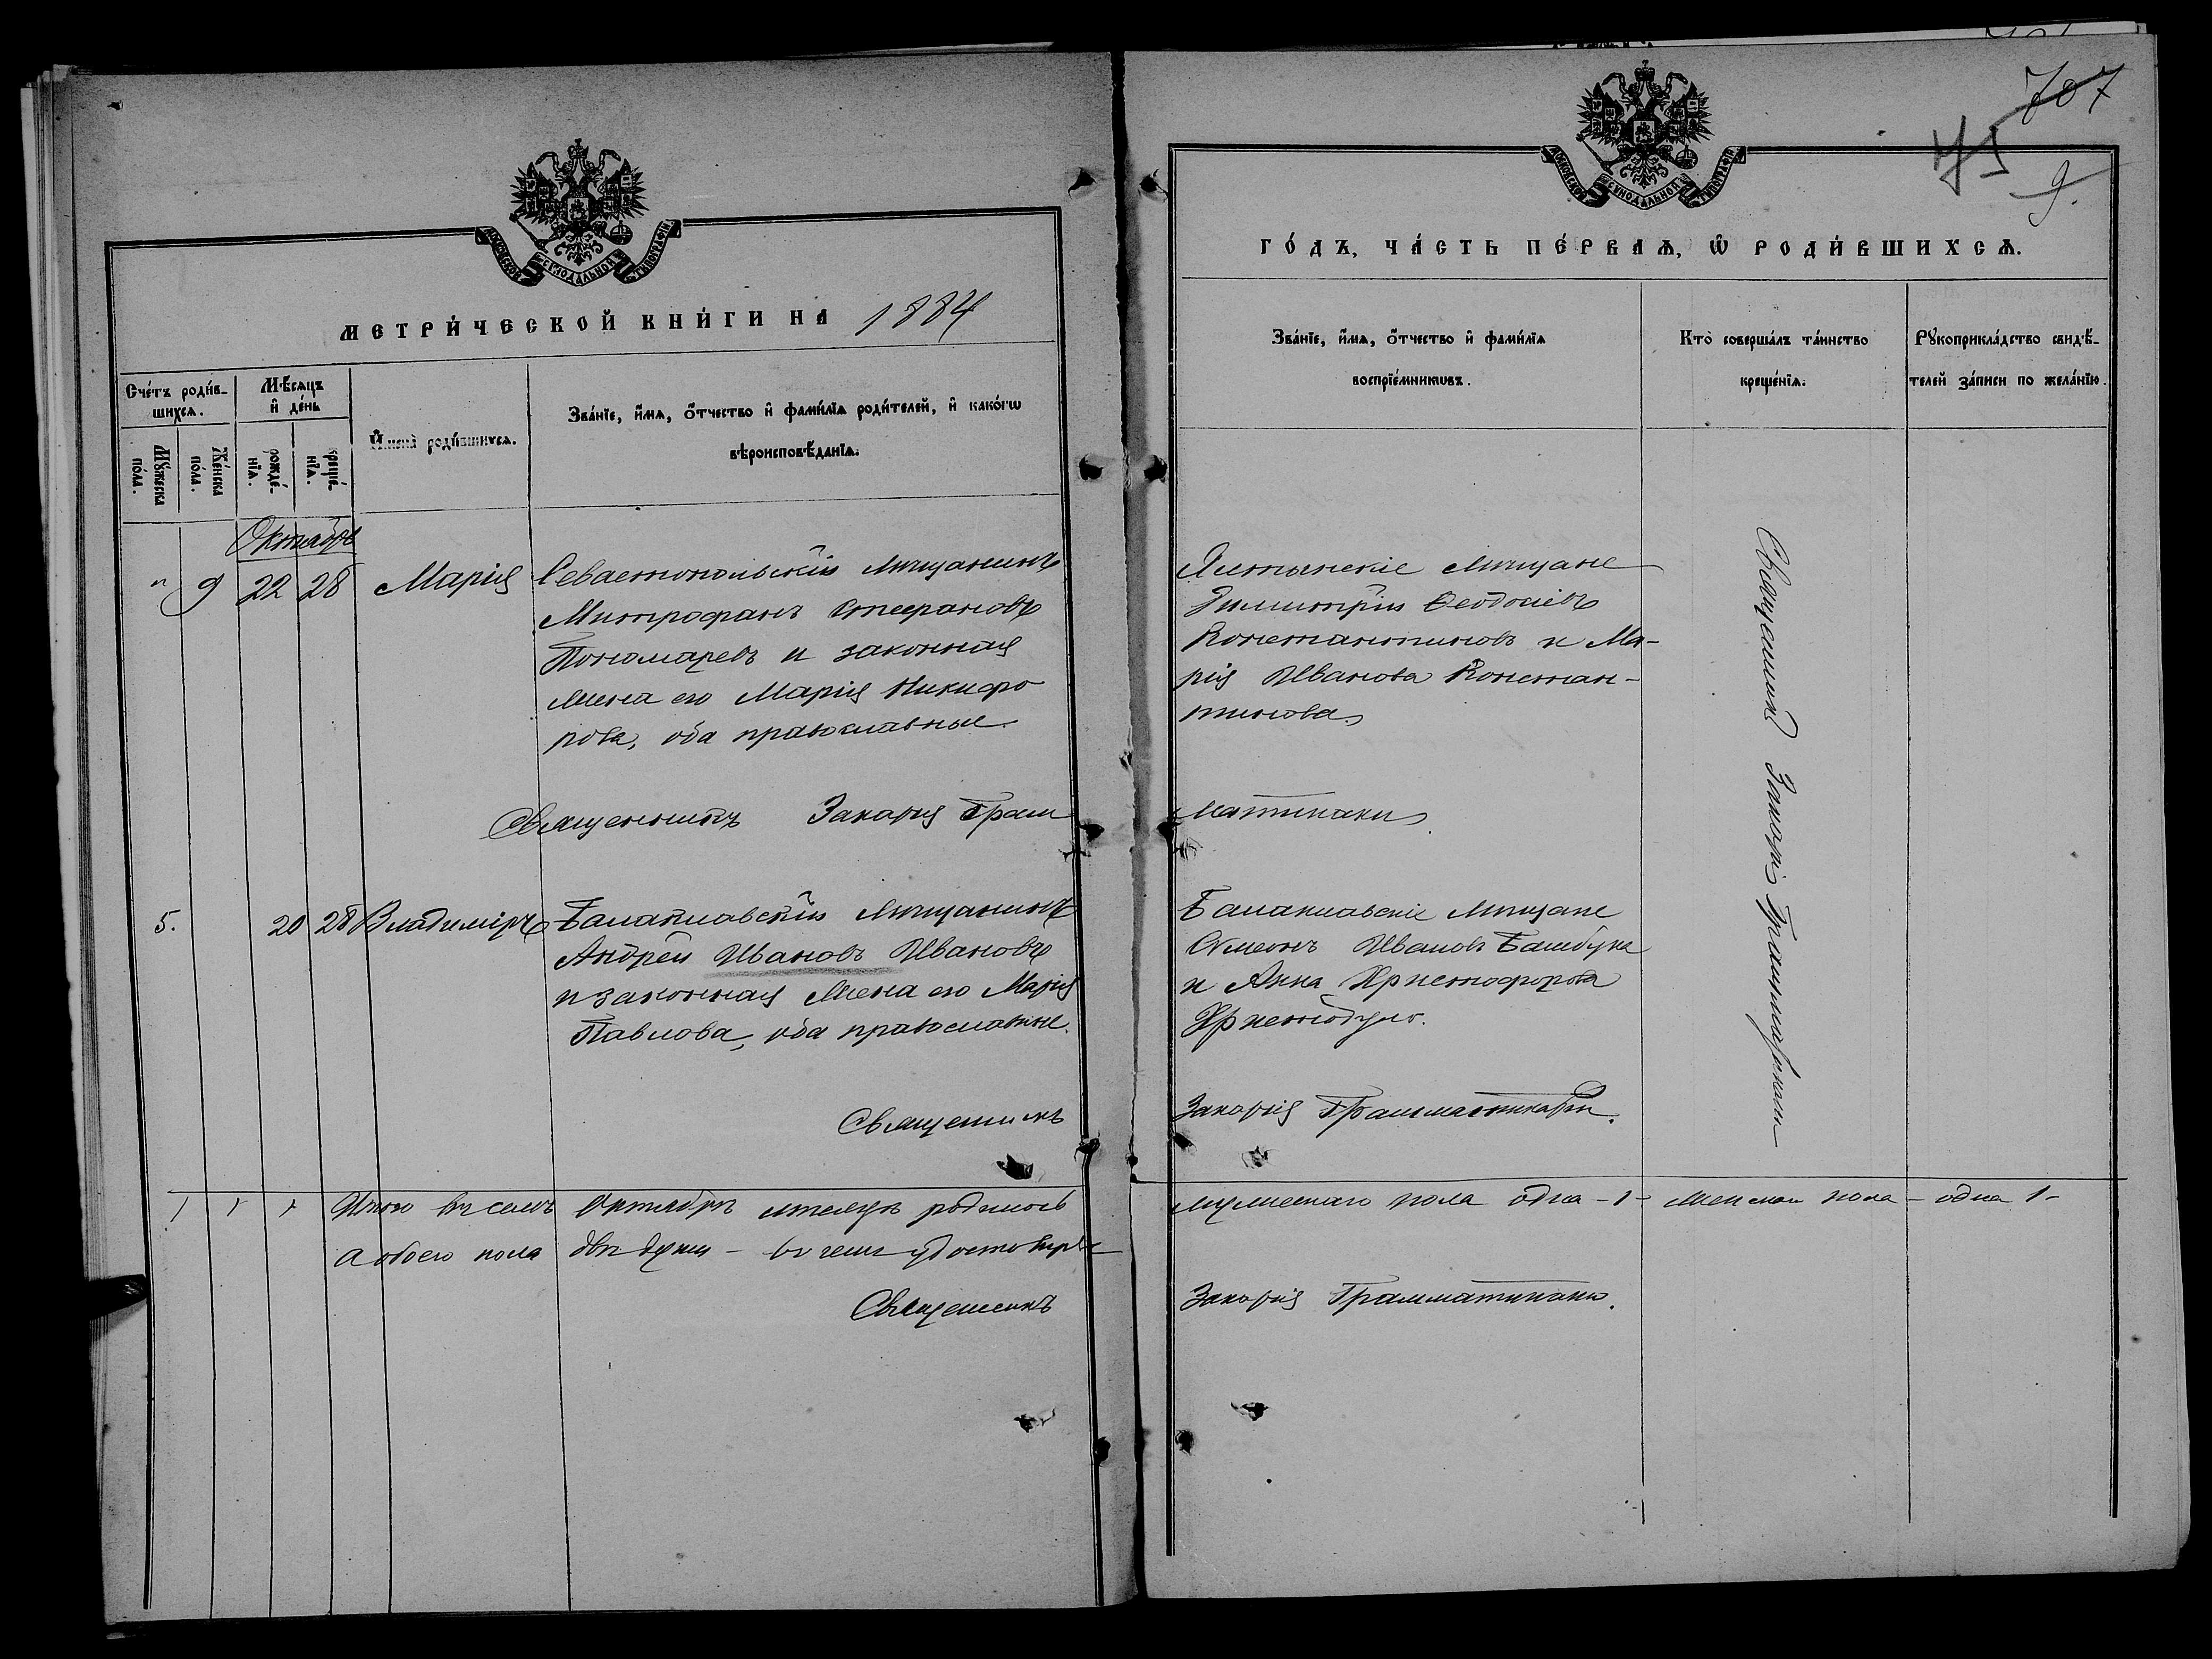 707
75
9.
МОСКОВСКОЙ СѴНОДАЛЬНОЙ ТИПОГРАФІИ
МЕТРИ́ЧЕСКОЙ КНИ́ГИ НА 1884
Сче́тъ роди́в-
шихсѧ.
Мꙋ́жеска
по́ла.
Же́нска
по́ла.
Мѣ́сѧцъ
и҆ де́нь
рожде́-
нїѧ.
креще́-
нїѧ.
И҆мена̀ роди́вшихсѧ.
Зва́нїе, и҆́мѧ, ѻ҆́тчество и҆ фами́лїѧ роди́телей, и҆ како́гѡ
вѣроисповѣ́данїѧ.
Октябрь
" 9 22 28 Марія Севастопольскій мѣщанинъ
Митрофанъ Стефановъ
Пономаревъ и законная
жена его Марія Никифо
рова, оба православные.
Священникъ Захарія Грам
5. 20 28 Владиміръ Балаклавскій мѣщанинъ
Андрей Ивановъ Ивановъ
и законная жена его Марія
Павлова, оба православные.
Священникъ
1 1 1 Итого въ семъ Октябрѣ мѣсяцѣ родилось
а обоего пола двѣ души – въ чемъ удостовѣр
Священникъ
МОСКОВСКОЙ СѴНОДАЛЬНОЙ ТИПОГРАФІИ
ГО́ДЪ, ЧА́СТЬ ПЕ́РВАѦ, Ѡ҆ РОДИ́ВШИХСѦ.
Зва́нїе, и҆́мѧ, ѻ҆́тчество и҆ фами́лїѧ
воспрїе́мникѡвъ.
Кто̀ соверша́лъ та́инство
креще́нїѧ.
Рꙋкоприкла́дство свидѣ́-
телей за́писи по жела́нїю.
Ялтинскіе мѣщане
Димитрій Ѳеодосіевъ
Константиновъ и Ма-
рія Иванова Констан-
тинова
матикаки
Балаклавскіе мѣщане
Симеонъ Ивановъ
и Анна Христофорова
Христодуло.
Захарія Грамматикаки.
Священникъ Захарія Грамматикаки
мужескаго пола одна – 1 – женскаго пола – одна 1 –
Захарія Грамматикаки.